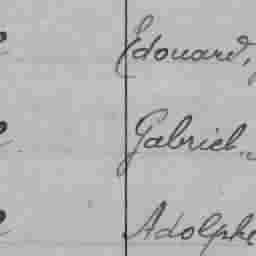 Edouard,
Gabriel.
Adolphe